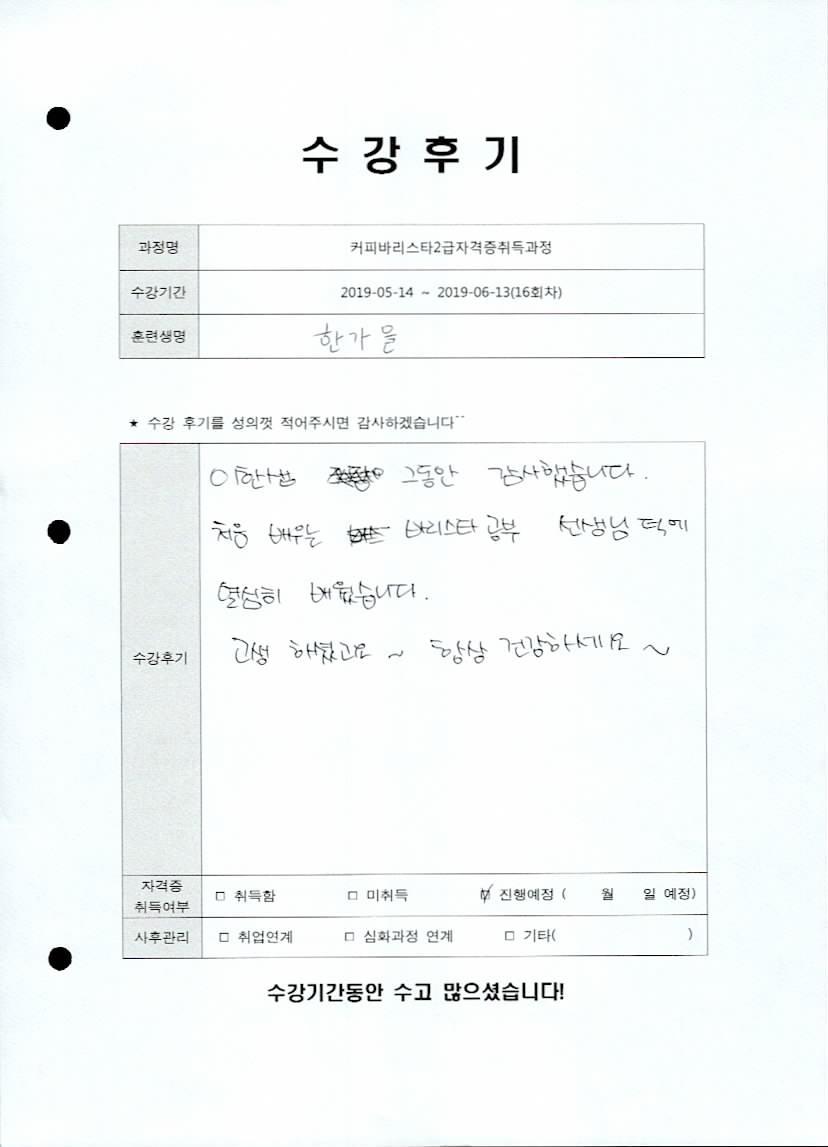 수 강 후 기
과정명 커피바리스타2급자격증취득과정
수강기간 2019-05-14 ~ 2019-06-13(16회차)
훈련생명 한가을
★ 수강 후기를 성의껏 적어주시면 감사하겠습니다^^
그동안 감사했습니다.
처음 배우는 바리스타 공부 선생님 덕에
열심히 배웠습니다.
수강후기
고생 하셨고요 ~ 항상 건강하세요 ~
자격증
취득여부 □ 취득함 □ 미취득 ☑ 진행예정 ( 월 일 예정)
사후관리 □ 취업연계 □ 심화과정 연계 □ 기타( )
수강기간동안 수고 많으셨습니다!